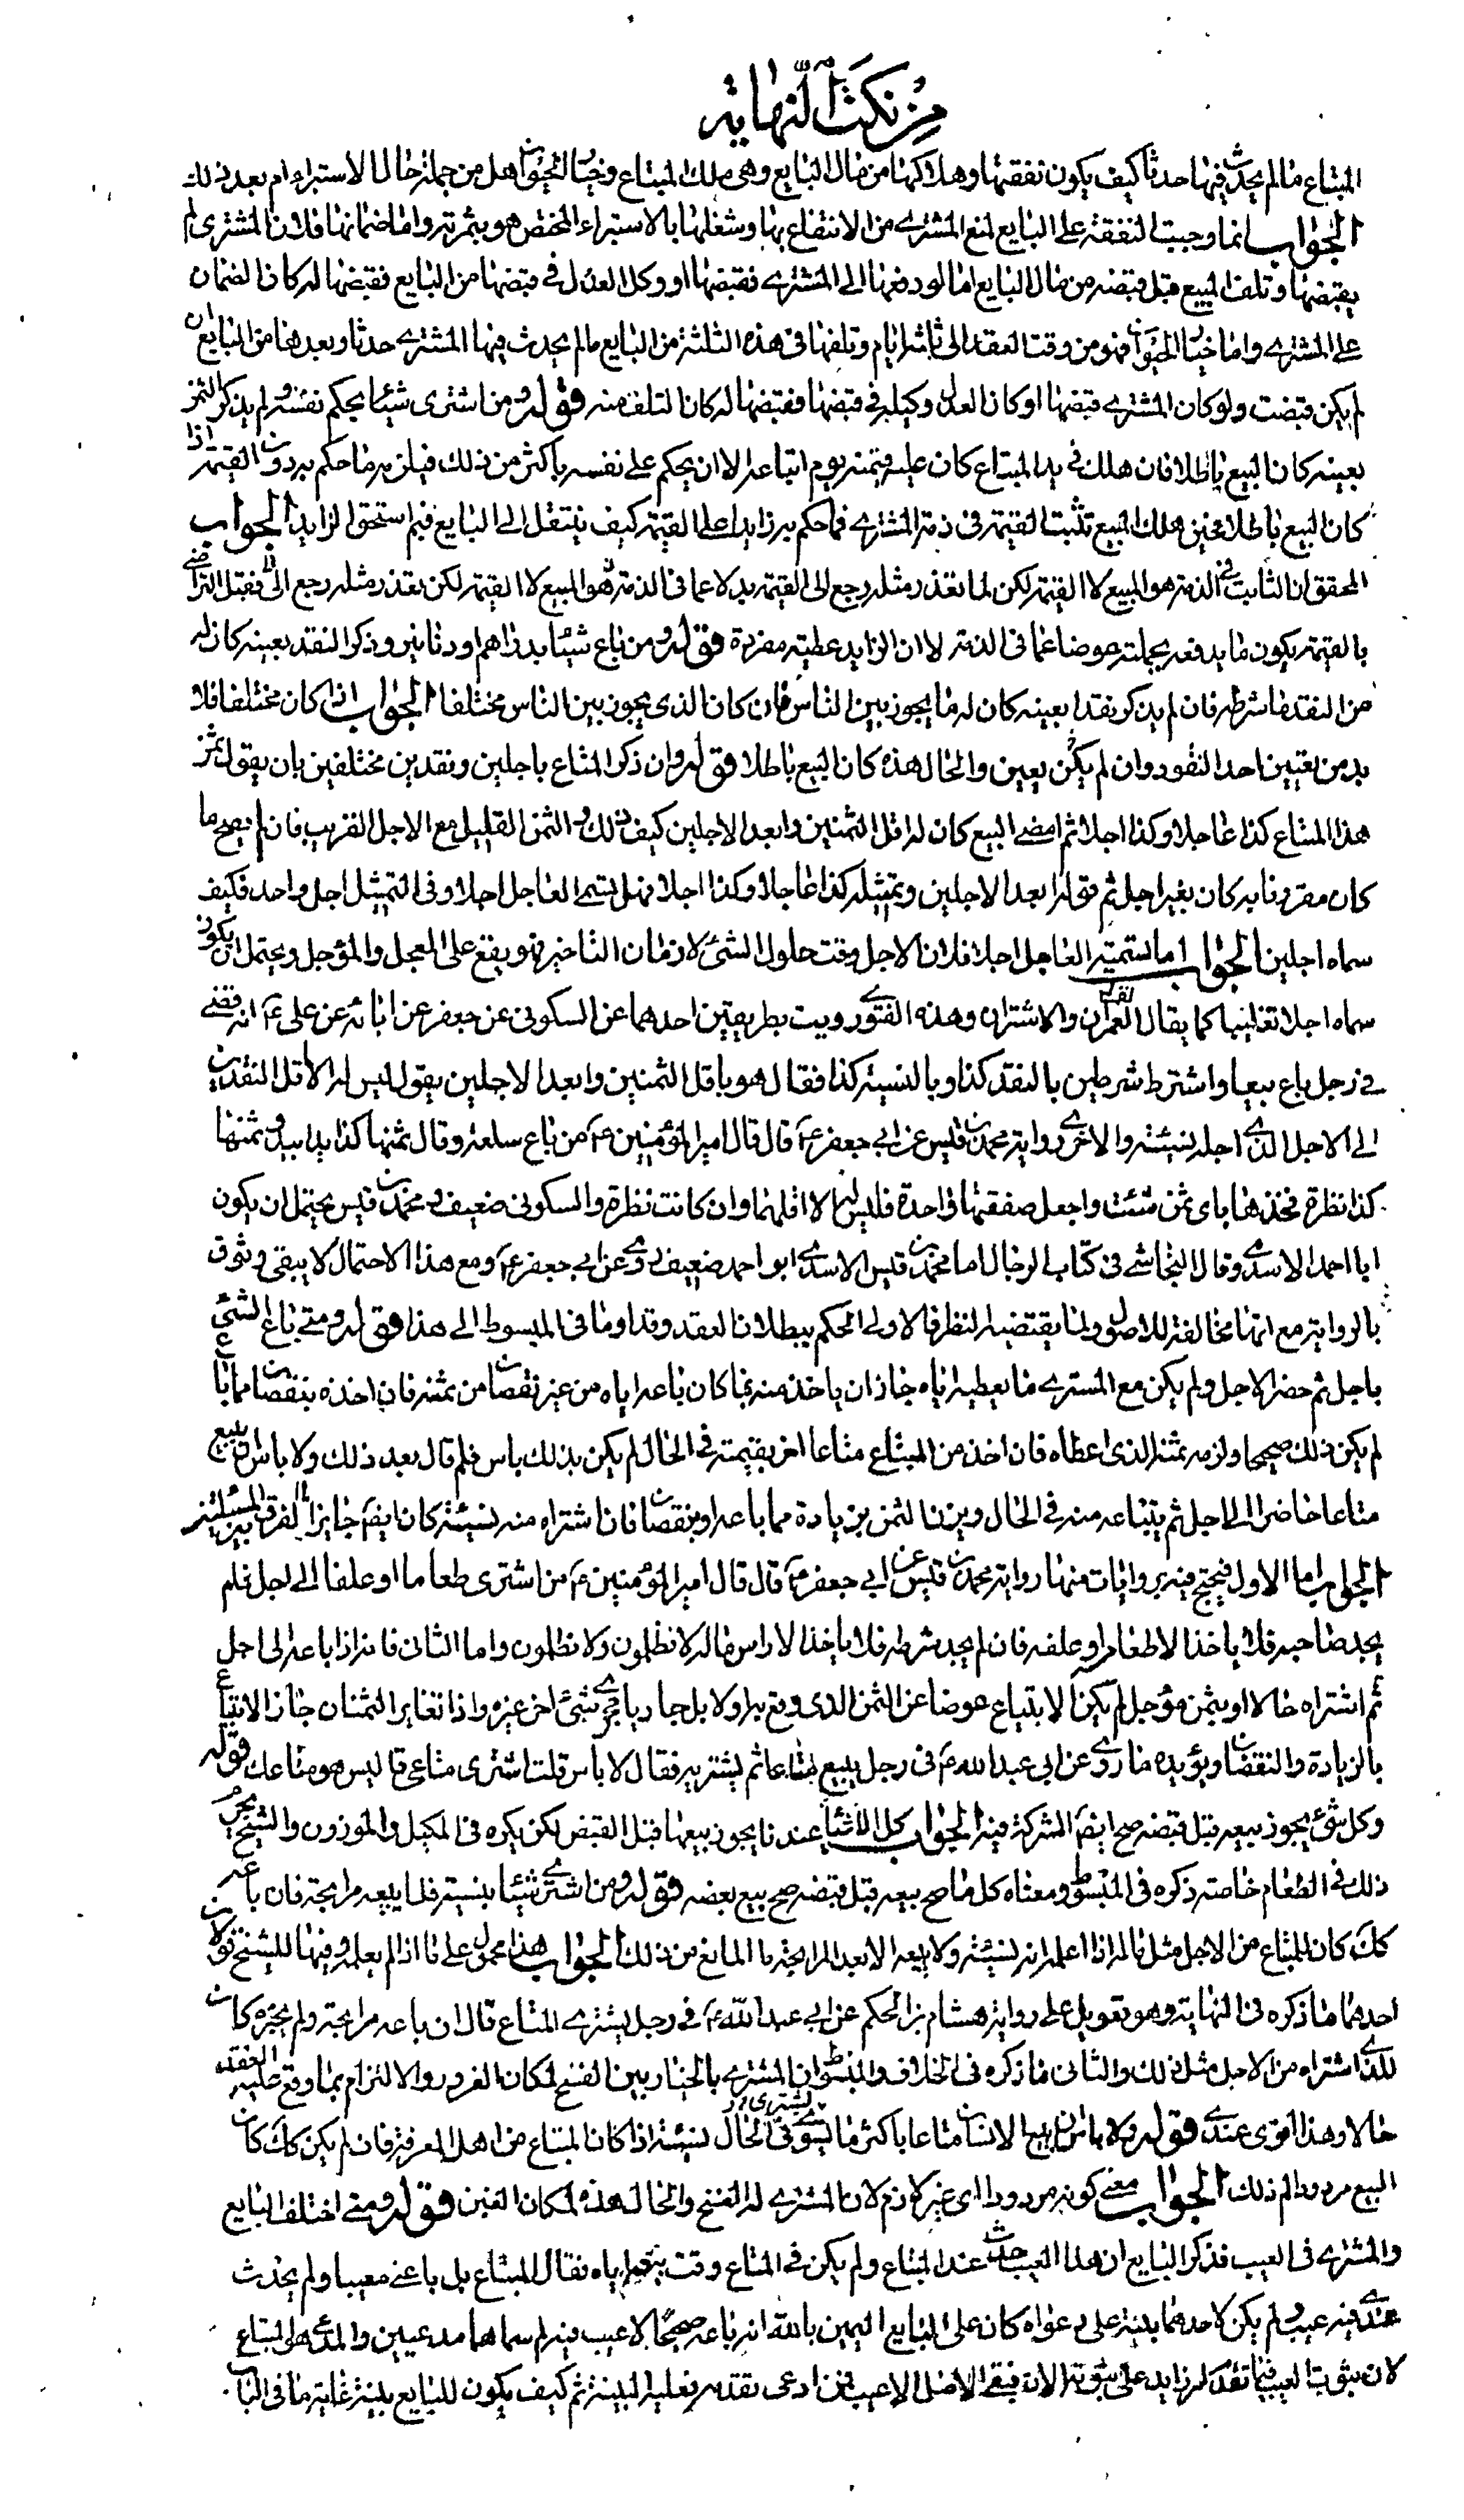 من نكت النهاية
المبتاع ما لم يحدث فيها حدثا كيف يكون نفقتها وهلاكها من مال البايع وهي ملك المبتاع وخيار الحيوان هل من جملة حال الاستبراء ام بعد ذلك
الجواب انما وجبت النفقة على البايع لمنع المشتري من الانتفاع بها وشغلها بالاستبراء المختص هو بثمرته واما ضمانها فلان المشتري لم
يقبضها وتلف المبيع قبل قبضه من مال البايع اما لو دفعها الى المشتري فقبضها او وكل العدل في قبضها من البايع فقبضها له كان الضمان
على المشتري واما خيار الحيوان فهو من وقت العقد الى ثلثة ايام وتلفها في هذه الثلثة من البايع ما لم يحدث فيها المشتري حدثا وبعدها من البايع ان
لم يكن قبضت ولو كان المشتري قبضها او كان العدل وكيله في قبضها فقبضها له كان التلف منه قوله ومن اشترى شيئا بحكم نفسه ولم يذكر الثمن
بعينه كان البيع باطلا فان هلك في يد المبتاع كان عليه قيمته يوم ابتاعه الا ان يحكم على نفسه باكثر من ذلك فيلزمه ما حكم به دون القيمة اذا
كان البيع باطلا فحين هلك المبيع تثبت القيمة في ذمة المشتري فما حكم به زايدا على القيمة كيف ينتقل الى البايع فبم استحق الزايد الجواب
المحقق ان الثابت في الذمة هو المبيع لا القيمة لكن لما تعذر مثله رجع الى القيمة بدلا عما في الذمة هو المبيع لا القيمة لكن بعذر مثله رجع الى فقبل التراضي
بالقيمة يكون ما يدفعه بجملته عوضا عما في الذمة لا ان الزايد عطية مفردة قوله ومن باع شيئا بدراهم او دنانير وذكر النقد بعينه كان له
من النقد ما شرط فان لم يذكر نقدا بعينه كان له ما يجوز بين الناس فان كان الذي يجوز بين الناس مختلفا الجواب اذا كان مختلفا فلا
بد من تعيين احد النقود وان لم يكن يعين والحال هذه كان البيع باطلا قوله وان ذكر المتاع باجلين ونقدين مختلفين بان يقول ثمن
هذا المتاع كذا عاجلا وكذا اجلا ثم امضى البيع كان له اقل الثمنين وابعد الاجلين كيف ذلك و الثمن القليل مع الاجل القريب فان لم يصح ما
كان مقرونا به كان بغير اجل ثم قوله ابعد الاجلين وتمثيله كذا عاجلا وكذا اجلا فهل يسمى العاجل اجلا وفي التمثيل اجل واحد فكيف
سماه اجلين الجواب اما تسمية العاجل اجلا فلان الاجل وقت حلول الشئ لا زمان التاخير فهو يقع على المعجل والمؤجل ويحتمل ان يكون
سماه اجلا تغليبا كما يقال العمران والاشتران وهذه الفتوى رويت بطريقين احدهما عن السكوني عن جعفر عن ابائه عن علي ع انه قضى
في رجل باع بيعا واشترط شرطين بالنقد كذا وبالنسية كذا فقال هو باقل الثمنين وابعد الاجلين يقول ليس له الا قل النقدين
الى الاجل الذي اجله بنسيئة والاخرى رواية محمد بن قيس عن ابي جعفر ع قال قال امير المؤمنين ع من باع سلعة وقال ثمنها كذا يدا بيد وثمنها
كذا نظرة فخذها باي ثمن شئت واجعل صفقتها واحدة فليس له الا اقلهما وان كانت نظرة والسكوني ضعيف و محمد بن قيس يحتمل ان يكون
ابا احمد الاسدي وقال النجاشي في كتاب الرجال اما محمد بن قيس الاسدي ابو احمد ضعيف روى عن ابي جعفر ع ومع هذا الاحتمال لا يبقى وثوق
بالرواية مع انها مخالفة للاصول ولما يقتضيه النظر فالاولى الحكم ببطلان العقد وقد اوما في المبسوط الى هذا قوله ومتى باع الشئ
باجل ثم حضر الاجل ولم يكن مع المشتري ما يعطيه اياه جاز ان ياخذ منه بما كان باعه اياه من غير نقصان من ثمنه فان اخذه بنقصان مما باع
لم يكن ذلك صحيحا ولزمه ثمنه الذي اعطاه فان اخذ من المبتاع متاعا اخر بقيمته في الحال لم يكن بذلك باس فلم قال بعد ذلك ولا باس ان يبيع
متاعا حاضرا الى اجل ثم يبتاعه منه في الحال ويزن الثمن بزيادة مما باعه او بنقصان فان اشتراه منه بنسيئة كان ايضا جايزا ما الفرق بين المسئلتين
الجواب اما الاول فيحتج فيه بروايات منها رواية محمد بن قيس عن ابي جعفر ع قال قال امير المؤمنين ع من اشترى طعاما او علفا الى اجل فلم
يجد صاحبه فلا ياخذ الا طعامه او علفه فان لم يجد شرطه فلا ياخذ الا راس ماله لا تظلمون ولا تظلمون واما الثاني فانه اذا باعه الى اجل
ثم اشتراه حالا او بثمن مؤجل لم يكن الابتياع عوضا عن الثمن الذي وقع به اولا بل جاريا مجرى شئ اخر غيره واذا تغاير الثمنان جاز الابتياع
بالزيادة والنقصان ويؤيده ما روي عن ابي عبد الله ع في رجل يبيع متاعا ثم يشتريه فقال لا باس قلت اشترى متاعي قال ليس هو متاعك قوله
وكل شئ يجوز بيعه قبل قبضه صح ايضا الشركة فيه الجواب كل الاشياء عندنا يجوز بيعها قبل القبض لكن يكره في المكيل والموزون والشيخ يحرم
ذلك في الطعام خاصة ذكره في المبسوط ومعناه كل ما صح بيعه قبل قبضه صح بيع بعضه قوله ومن اشترى شيئا بنسية فلا يبيعه مرابحة فان باعه
كك كان للمبتاع من الاجل مثل ماله اذا اعلمه انه بنسيئة ولا يبيعه الا بعد المرابحة ما المانع من ذلك الجواب هذا محمول على ما اذا لم يعلمه وفيها للشيخ قولان
احدهما ما ذكره في النهاية وهو تعويل على رواية هشام بن الحكم عن ابي عبد الله ع في رجل يشتري المتاع قال ان باعه مرابحة ولم يخبره كان
للذي اشتراه من الاجل مثل ذلك والثاني ما ذكره في الخلاف والمبسوط ان المشتري بالخيار بين الفسخ لمكان الغرور والالتزام بما وقع عليه العقد
حالا وهذا اقوى عندي قوله ولا باس ان يبيع الانسان متاعا باكثر ما يسوى في الحال بنسيئة اذا كان المبتاع من اهل المعرفة فان لم يكن كك كان
البيع مردودا لم ذلك الجواب معنى كونه مردودا اي غير لازم لان المشتري له الفسخ والحال هذه لمكان الغبن قوله ومتى اختلف البايع
والمشتري في العيب فذكر البايع ان هذا العيب حدث عند المبتاع ولم يكن في المتاع وقت بيعه اياه فقال المبتاع بل باعني معيبا ولم يحدث
عندي فيه عيب ولم يكن لاحدهما بينة على دعواه كان على البايع اليمين بالله انه باعه صحيحا لا عيب فيه لم سماهما مدعيين والمدعي هو المبتاع
لان ثبوت العيب فيما تقدم زايد على ثبوته الان فيبقى الاصل الا عيب فمن ادعى تقدمه فعليه البينة ثم كيف يكون للبايع بينة غاية ما في الباب